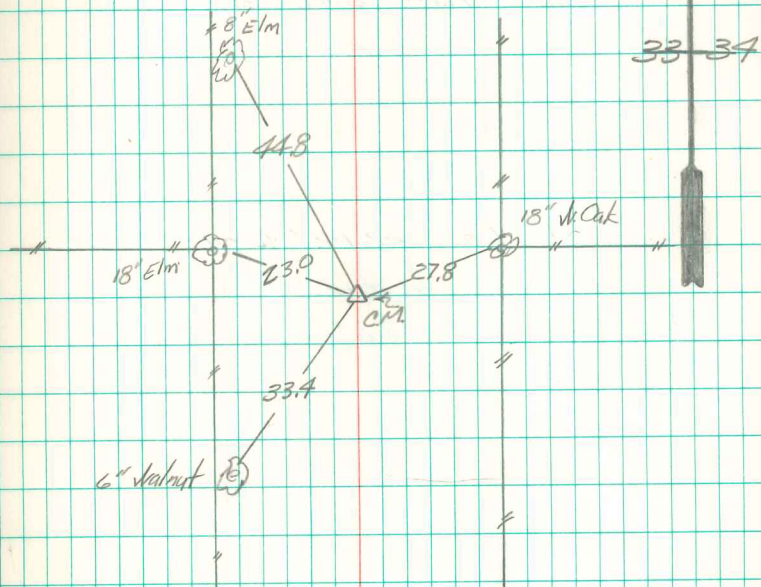 8" Elm
33 34
44.8
18" W.Oak
18" Elm
23.0
27.8
CM
33.4
6" Walnut